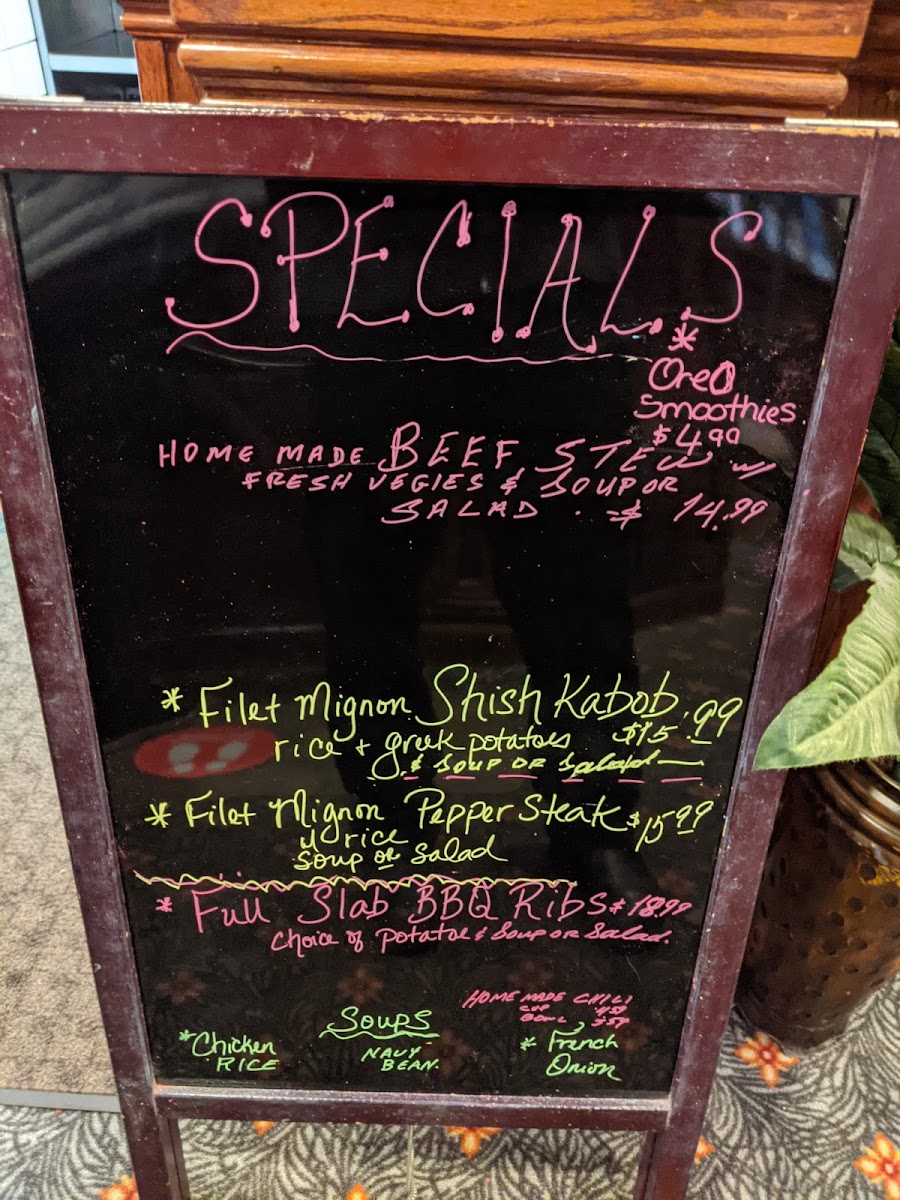 SPECIALS
*
Oreo
Smoothies
$4.99
HOME MADE BEEF STEW w/
FRESH VEGIES & SOUP OR
SALAD - $ 14.99
* Filet Mignon Shish Kabob
rice + greek potatoes $15.99
& SOUP OR Salad
* Filet Mignon Pepper Steak $15.99
w/ rice
Soup or Salad
* Full Slab BBQ Ribs $18.99
Choice of potatoe & Soup OR Salad.
HOME MADE CHILI
CUP
BOWL
Soups
* Chicken
RICE
NAVY
BEAN.
* French
Onion